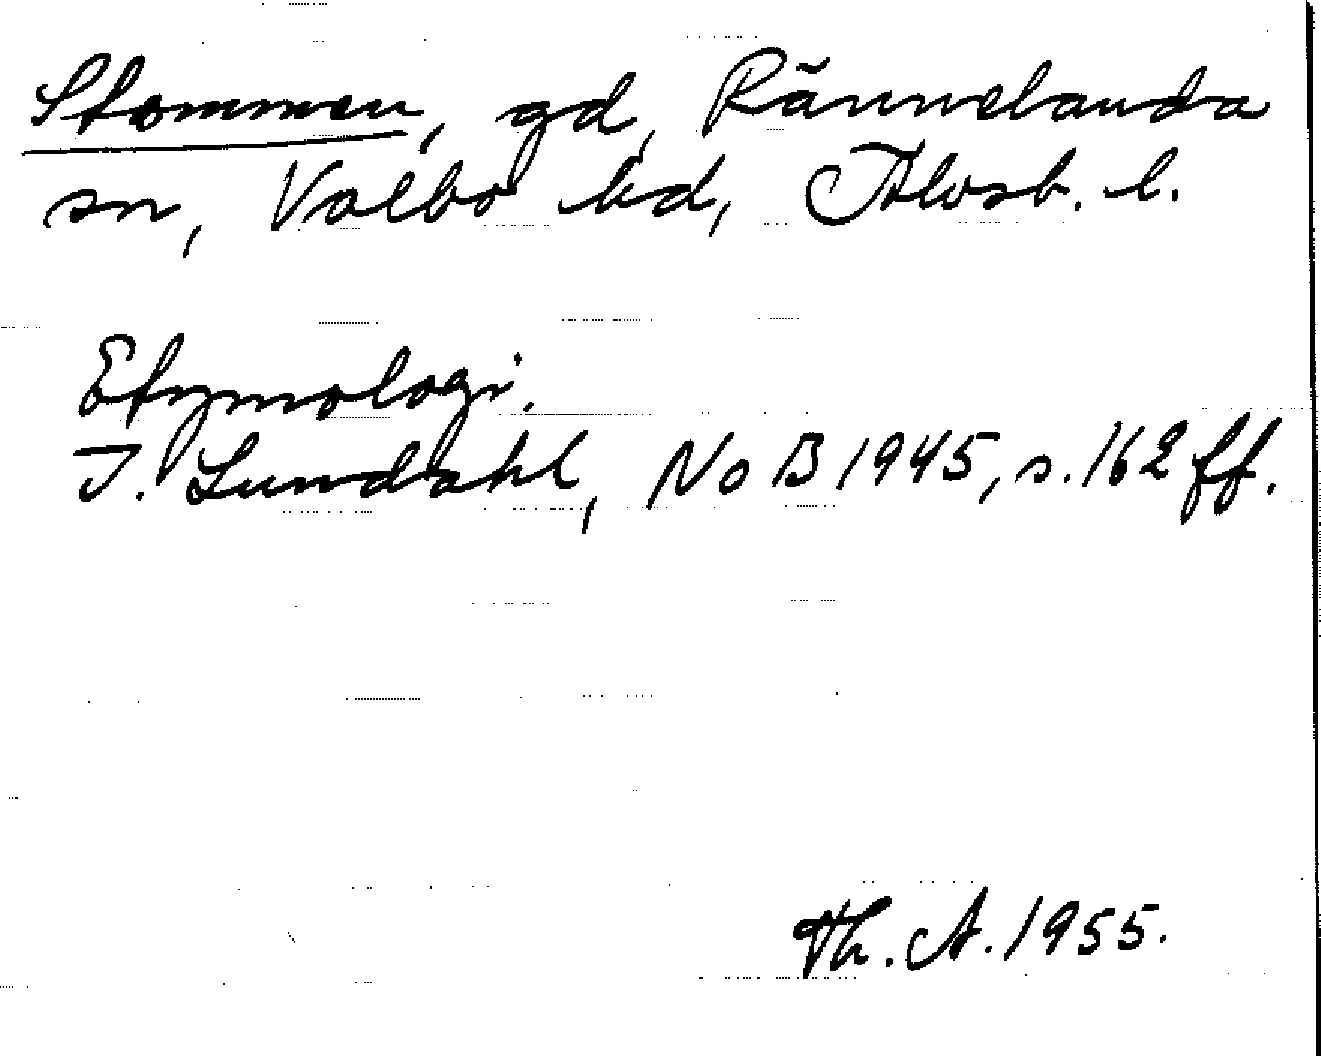 Stommen, gd, Rännelanda
sn, Valbo hd, Älvsb. l.
Etymologi.
I. Lundahl, NoB 1945, s. 162 ff.
Th. A. 1955.